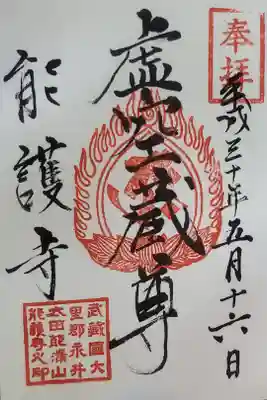 奉拝
平成三十年五月十六日
虚空蔵尊
能護寺
武藏國大
里郡永井
太田能満山
能護寺之印